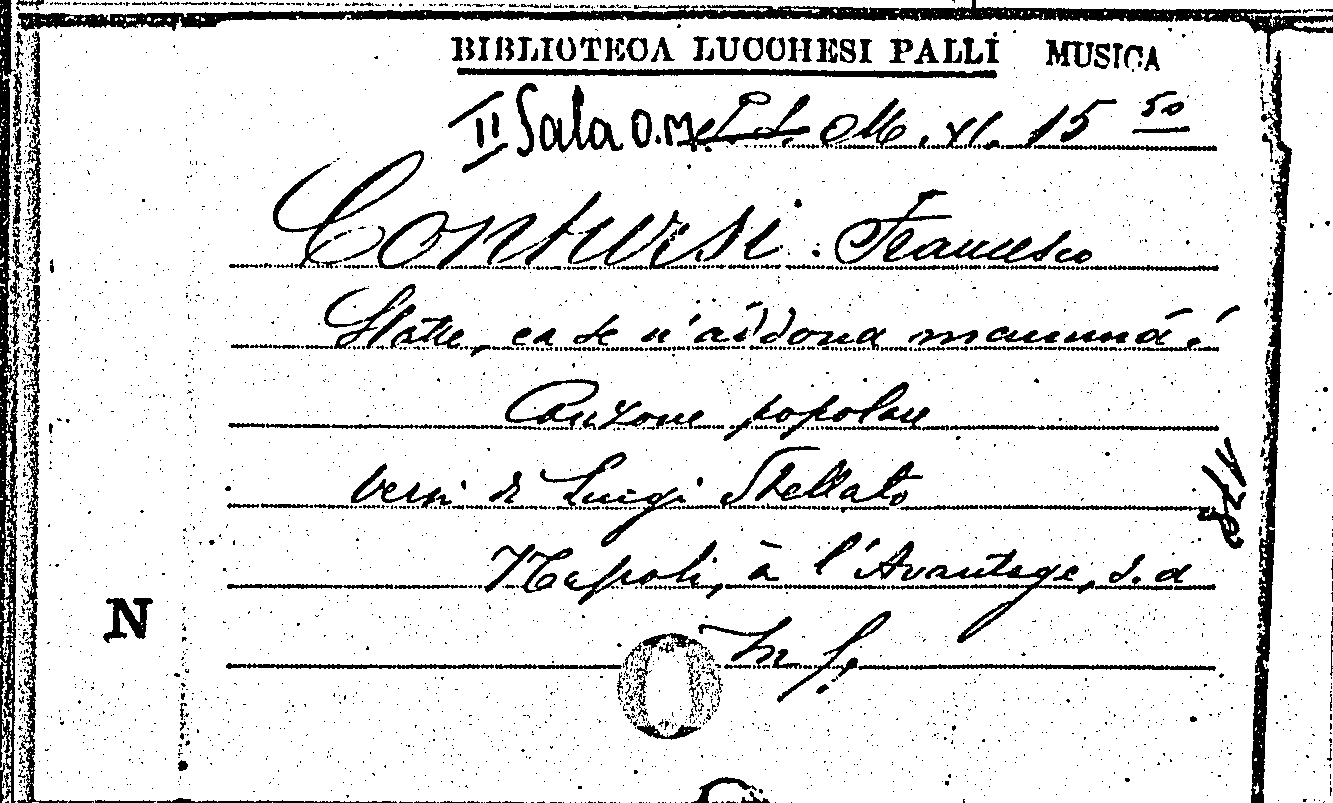 BIBLIOTECA LUCCHESI PALLI MUSICA
II Sala O.M. L.L. M. XI. 15 50
Contursi. Francesco
Statte, ca se n'addona mammá!
Canzone popolare
Versi di Luigi Stellato
Napoli, à l'Avantage, s.a
In f.
N